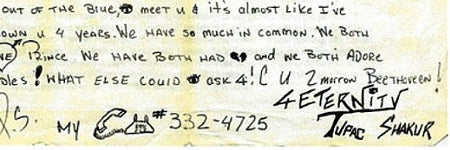 OUT OF THE BLUE, 👁 MEET U & it's almost like I've
OWN U 4 YEARS. WE HAVE SO MUCH IN COMMON. WE BOTH
VE PRINCE WE HAVE BOTH HAD 💔 and WE BOTH ADORE
oles! WHAT ELSE COULD 👁 ask 4! C U 2morrow BEETHOVEEN!
4ETERNITY
P.S. MY # 332-4725 TUPAC SHAKUR